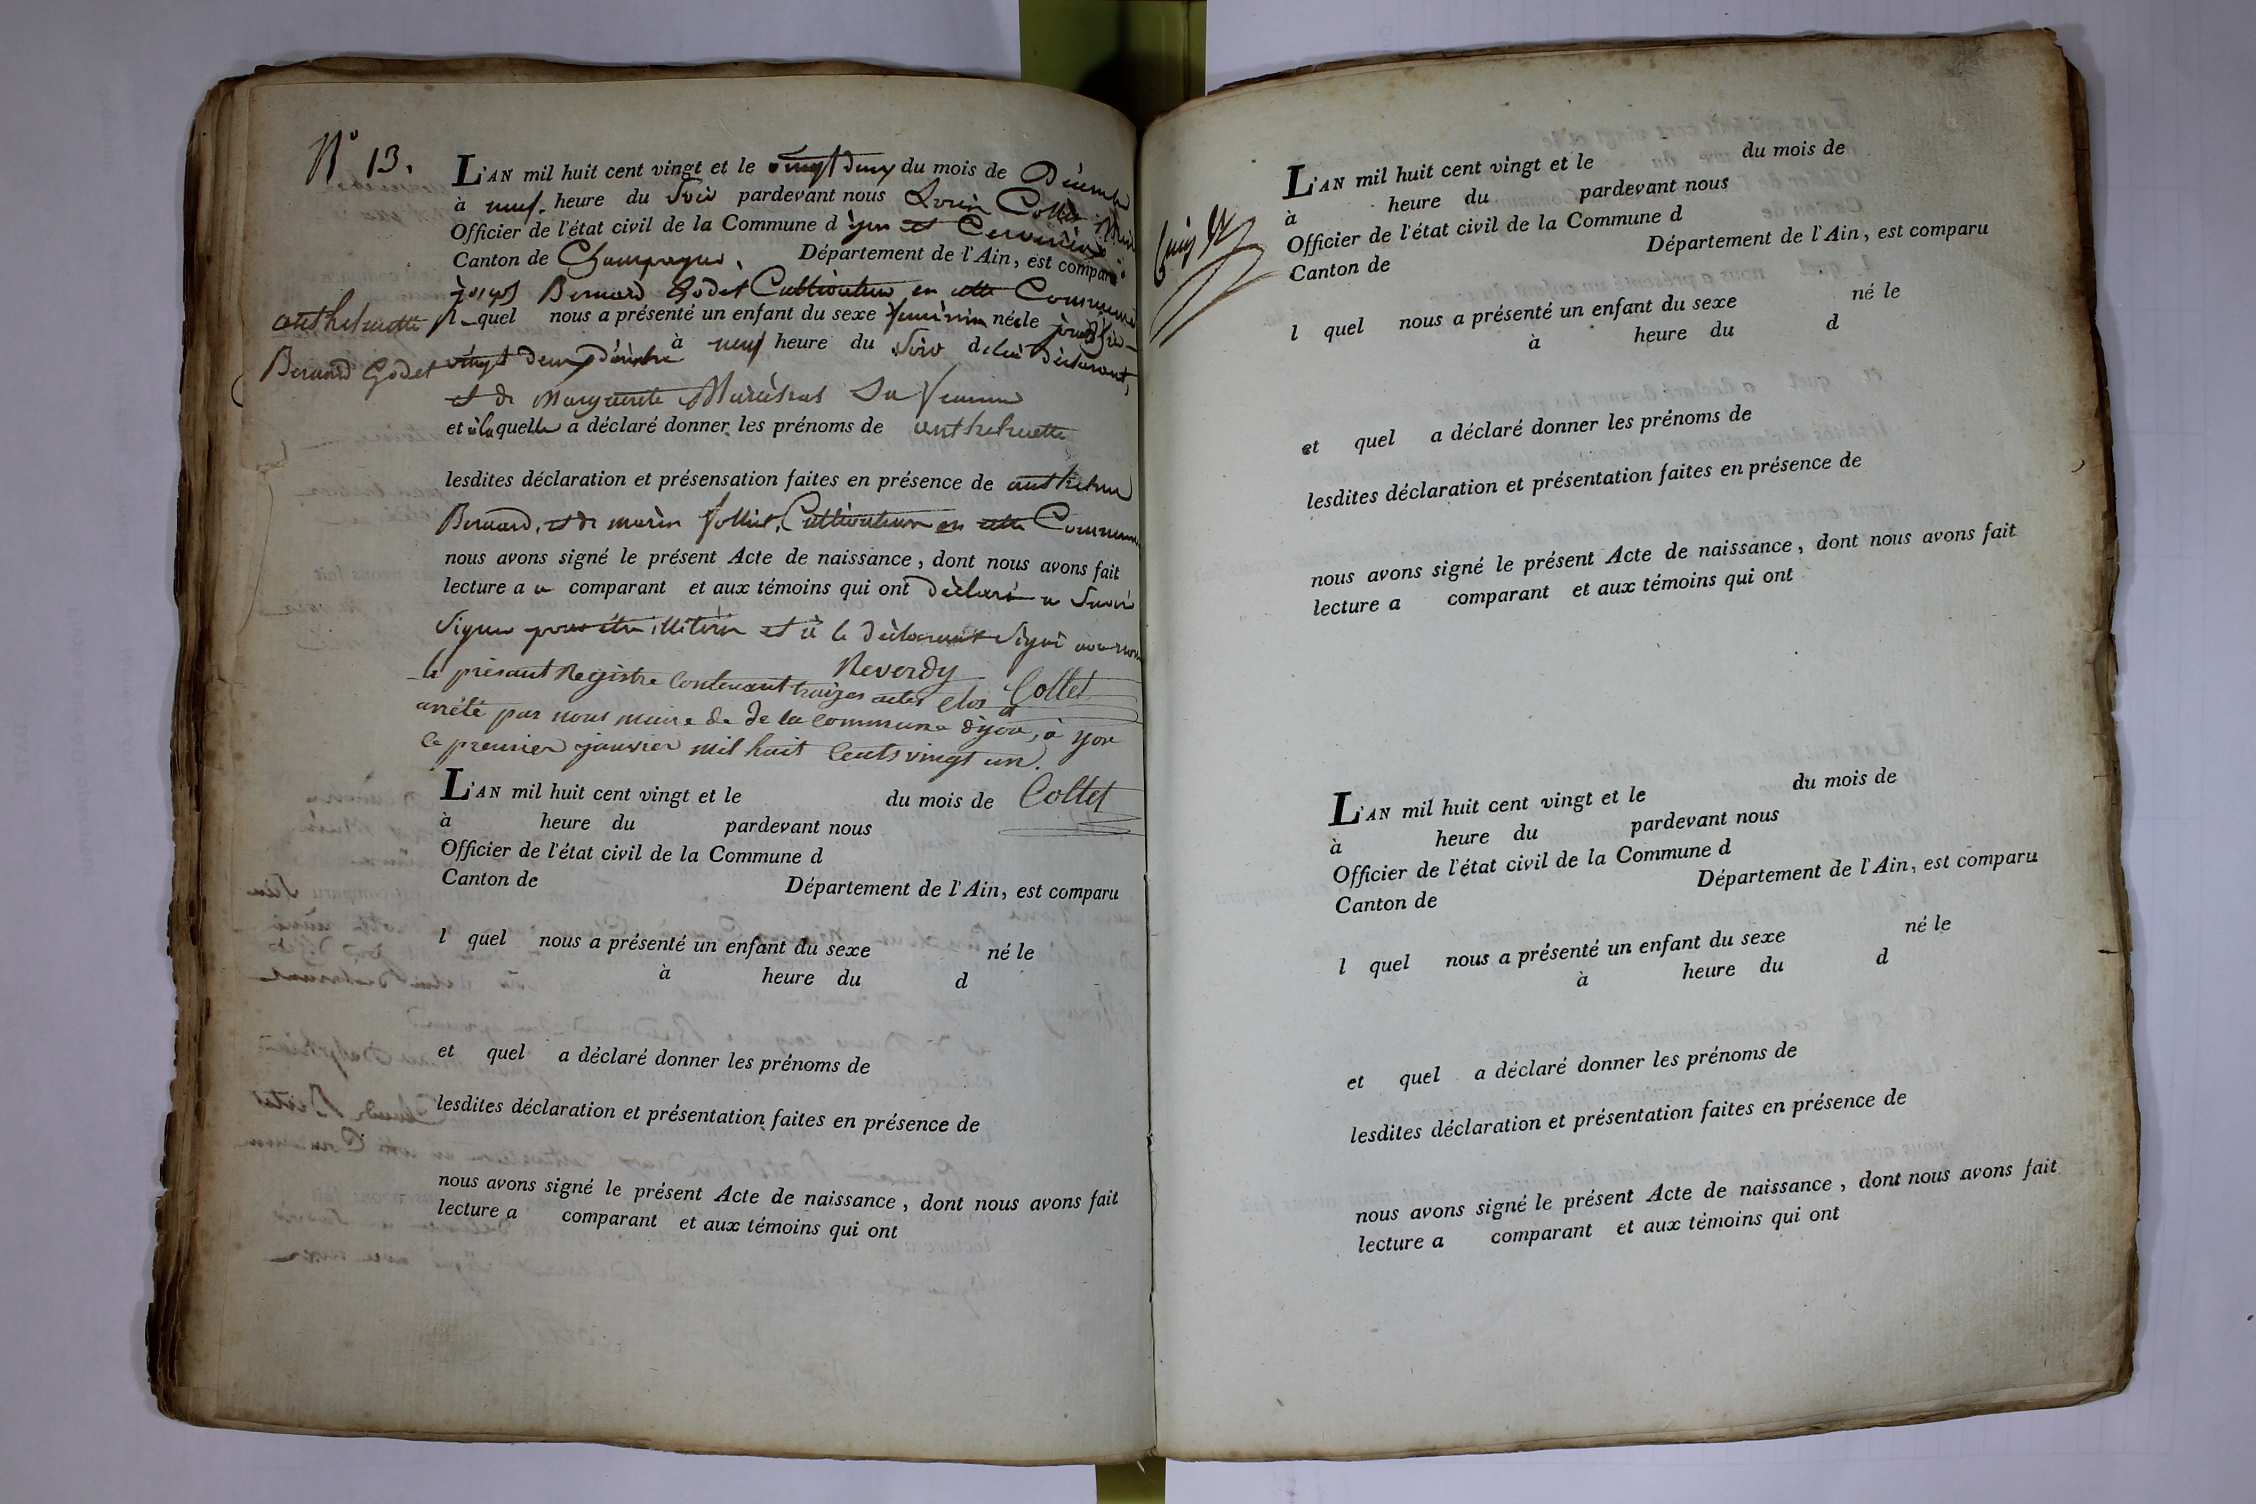 N° 13.
L'AN mil huit cent vingt et le vingt deux du mois de Décembre
à neuf heure du Soir pardevant nous Collet Maire
Officier de l'état civil de la Commune d'yon et Cerveirieu
Canton de Champagne. Département de l'Ain, est comparu
Joseph Bernard Godet Cultivateur en cette Commune
anthelmette
Bernard Godet
lequel nous a présenté un enfant du sexe féminin née le jourd'hui
vingt deux décembre à neuf heure du Soir de lui déclarant,
et de Marguerite Maréchal Sa femme
et à laquelle a déclaré donner les prénoms de anthelmette
lesdites déclaration et présensation faites en présence de anthelme
Bernard, et de marin follliet, Cultivateur en cette Commune
nous avons signé le présent Acte de naissance, dont nous avons fait
lecture a u comparant et aux témoins qui ont Déclaré ne Savoir
Signer pour être illitéré et à le déclarant Signé avec nous
Reverdy
Collet
le présant Registre Contenant traizes actes Clos et
arrété par nous maire de de la commune d'yon, à yon
le premier janvier mil huit Cents vingt un.
Collet
L'AN mil huit cent vingt et le du mois de
à heure du pardevant nous
Officier de l'état civil de la Commune d
Canton de Département de l'Ain, est comparu
l quel nous a présenté un enfant du sexe né le
à heure du d
et quel a déclaré donner les prénoms de
lesdites déclaration et présentation faites en présence de
nous avons signé le présent Acte de naissance, dont nous avons fait
lecture a comparant et aux témoins qui ont
L'AN mil huit cent vingt et le du mois de
à heure du pardevant nous
Officier de l'état civil de la Commune d
Canton de Département de l'Ain, est comparu
l quel nous a présenté un enfant du sexe né le
à heure du d
et quel a déclaré donner les prénoms de
lesdites déclaration et présentation faites en présence de
nous avons signé le présent Acte de naissance, dont nous avons fait
lecture a comparant et aux témoins qui ont
L'AN mil huit cent vingt et le du mois de
à heure du pardevant nous
Officier de l'état civil de la Commune d
Canton de Département de l'Ain, est comparu
l quel nous a présenté un enfant du sexe né le
à heure du d
et quel a déclaré donner les prénoms de
lesdites déclaration et présentation faites en présence de
nous avons signé le présent Acte de naissance, dont nous avons fait
lecture a comparant et aux témoins qui ont